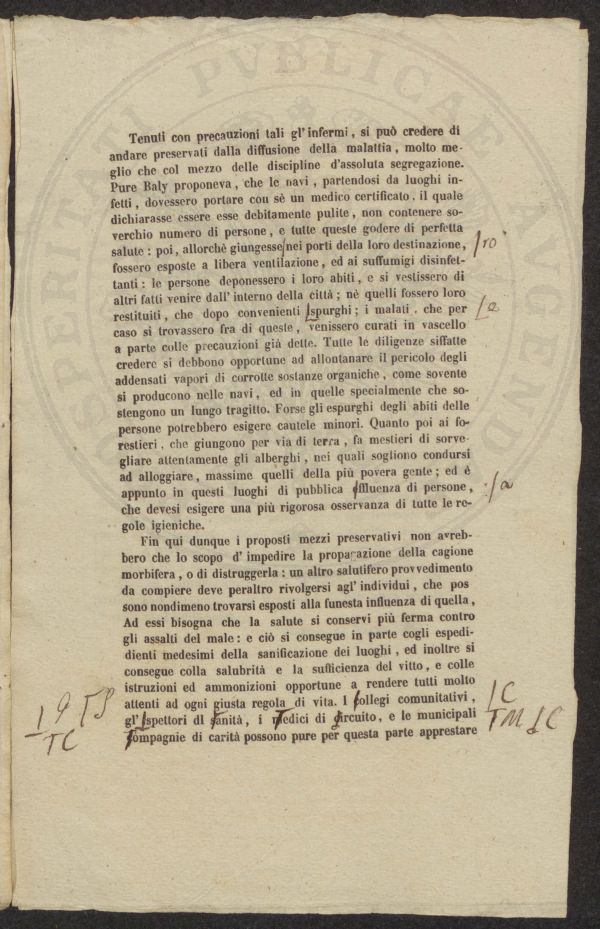 PROSPERITATI PUBLICAE AUGENDAE
Tenuti con precauzioni tali gl' infermi , si può credere di
andare preservati dalla diffusione della malattia , molto me-
glio che col mezzo delle discipline d'assoluta segregazione.
Pure Baly proponeva , che le navi , partendosi da luoghi in-
fetti , dovessero portare con sè un medico certificato , il quale
dichiarasse essere esse debitamente pulite , non contenere so-
verchio numero di persone , e tutte queste godere di perfetta
salute : poi , allorchè giungesse nei porti della loro destinazione , ro
fossero esposte a libera ventilazione , ed ai suffumigi disinfet-
tanti : le persone deponessero i loro abiti , e si vestissero di
altri fatti venire dall' interno della città ; nè quelli fossero loro
restituiti , che dopo convenienti spurghi ; i malati , che per e
caso si trovassero fra di queste , venissero curati in vascello
a parte colle precauzioni già dette. Tutte le diligenze siffatte
credere si debbono opportune ad allontanare il pericolo degli
addensati vapori di corrotte sostanze organiche , come sovente
si producono nelle navi , ed in quelle specialmente che so-
stengono un lungo tragitto. Forse gli espurghi degli abiti delle
persone potrebbero esigere cautele minori. Quanto poi ai fo-
restieri , che giungono per via di terra , fa mestieri di sorve-
gliare attentamente gli alberghi , nei quali sogliono condursi
ad alloggiare , massime quelli della più povera gente ; ed é
appunto in questi luoghi di pubblica effluenza di persone , a
che devesi esigere una più rigorosa osservanza di tutte le re-
gole igieniche.
Fin qui dunque i proposti mezzi preservativi non avreb-
bero che lo scopo d' impedire la propagazione della cagione
morbifera , o di distruggerla : un altro salutifero provvedimento
da compiere deve peraltro rivolgersi agl' individui , che pos
sono nondimeno trovarsi esposti alla funesta influenza di quella ,
Ad essi bisogna che la salute si conservi più ferma contro
gli assalti del male : e ciò si consegue in parte cogli espedi-
dienti medesimi della sanificazione dei luoghi , ed inoltre si
consegue colla salubrità e la sufficienza del vitto , e colle
istruzioni ed ammonizioni opportune a rendere tutti molto
attenti ad ogni giusta regola di vita. I collegi comunitativi , C
gl' Ispettori dl sanità , i medici di circuito , e le municipali M C
compagnie di carità possono pure per questa parte apprestare